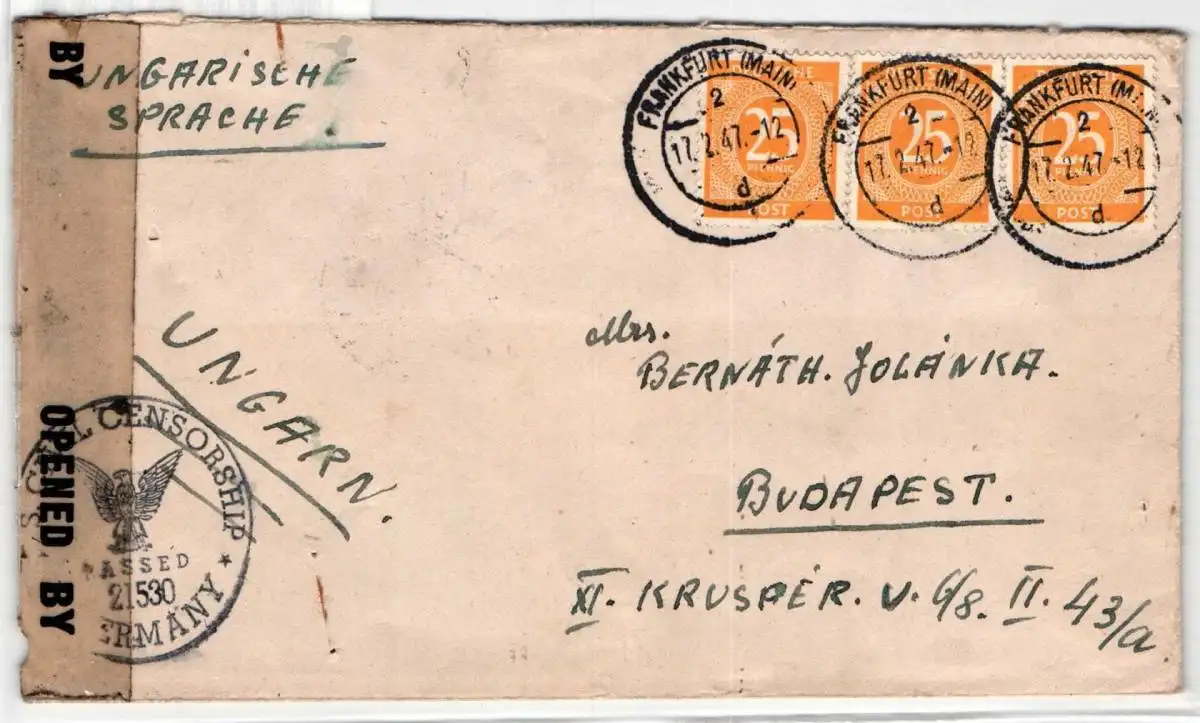 BY
OPENED BY
UNGARISCHE
SPRACHE.
FRANKFURT (MAIN)
2
17.2.47.-12
d
25
PFENNIG
POST
FRANKFURT (MAIN)
2
17.2.47.-12
d
25
PFENNIG
POST
FRANKFURT (MAIN)
2
17.2.47.-12
d
25
PFENNIG
POST
UNGARN.
Mrs.
BERNÁTH. JOLÁNKA.
BUDAPEST.
XI. KRUSPÉR. U. 6/8. II. 43/a
CENSORSHIP
PASSED
21530
GERMANY